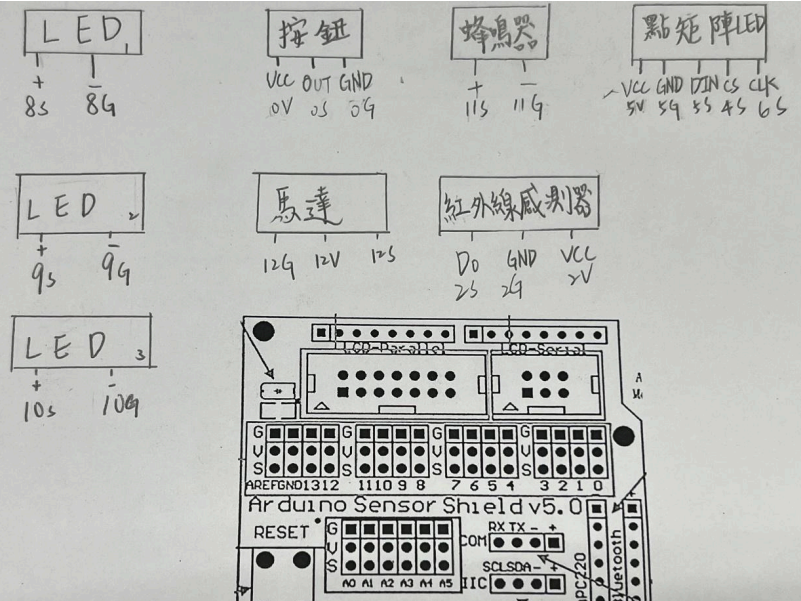 LED1
+ -
8S 8G
按鈕
VCC OUT GND
0V 0S 0G
蜂鳴器
+ -
11S 11G
點矩陣LED
VCC GND DIN CS CLK
5V 5G 5S 4S 6S
LED 2
+ -
9S 9G
馬達
12G 12V 12S
紅外線感測器
DO GND VCC
2S 2G 2V
LED 3
+ -
10S 10G
LCD-Parallel LCD-Serial
G G G G
V V V V
S S S S
AREF GND 13 12 11 10 9 8 7 6 5 4 3 2 1 0
Arduino Sensor Shield v5.0
RESET
G
V
S
A0 A1 A2 A3 A4 A5
RX TX - +
COM
SCL SDA - +
IIC
APC220
Bluetooth
+